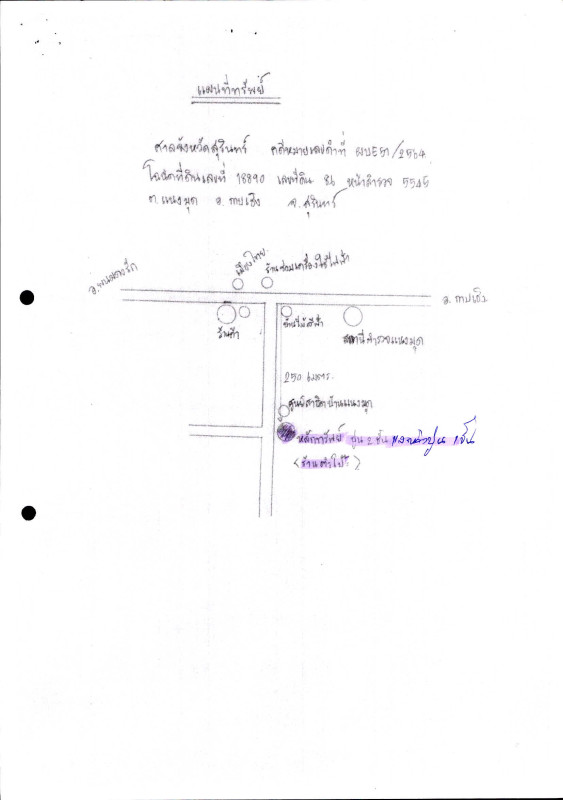 แผนที่ทรัพย์
ศาลจังหวัดสุรินทร์ คดีหมายเลขดำที่ ผบE51/2564
โฉนดที่ดินเลขที่ 18890 เลขที่ดิน 86 หน้าสำรวจ 5545
ต.แนงมุด อ.กาบเชิง จ.สุรินทร์
เมืองไทย
ร้านซ่อมเครื่องใช้ไฟฟ้า
อ.พนมดงรัก
อ.กาบเชิง
ร้านค้า
สถานีตำรวจแนงมุด
250 เมตร
ศูนย์สาธิตบ้านแนงมุด
หลักทรัพย์ ปูน 2 ชั้น